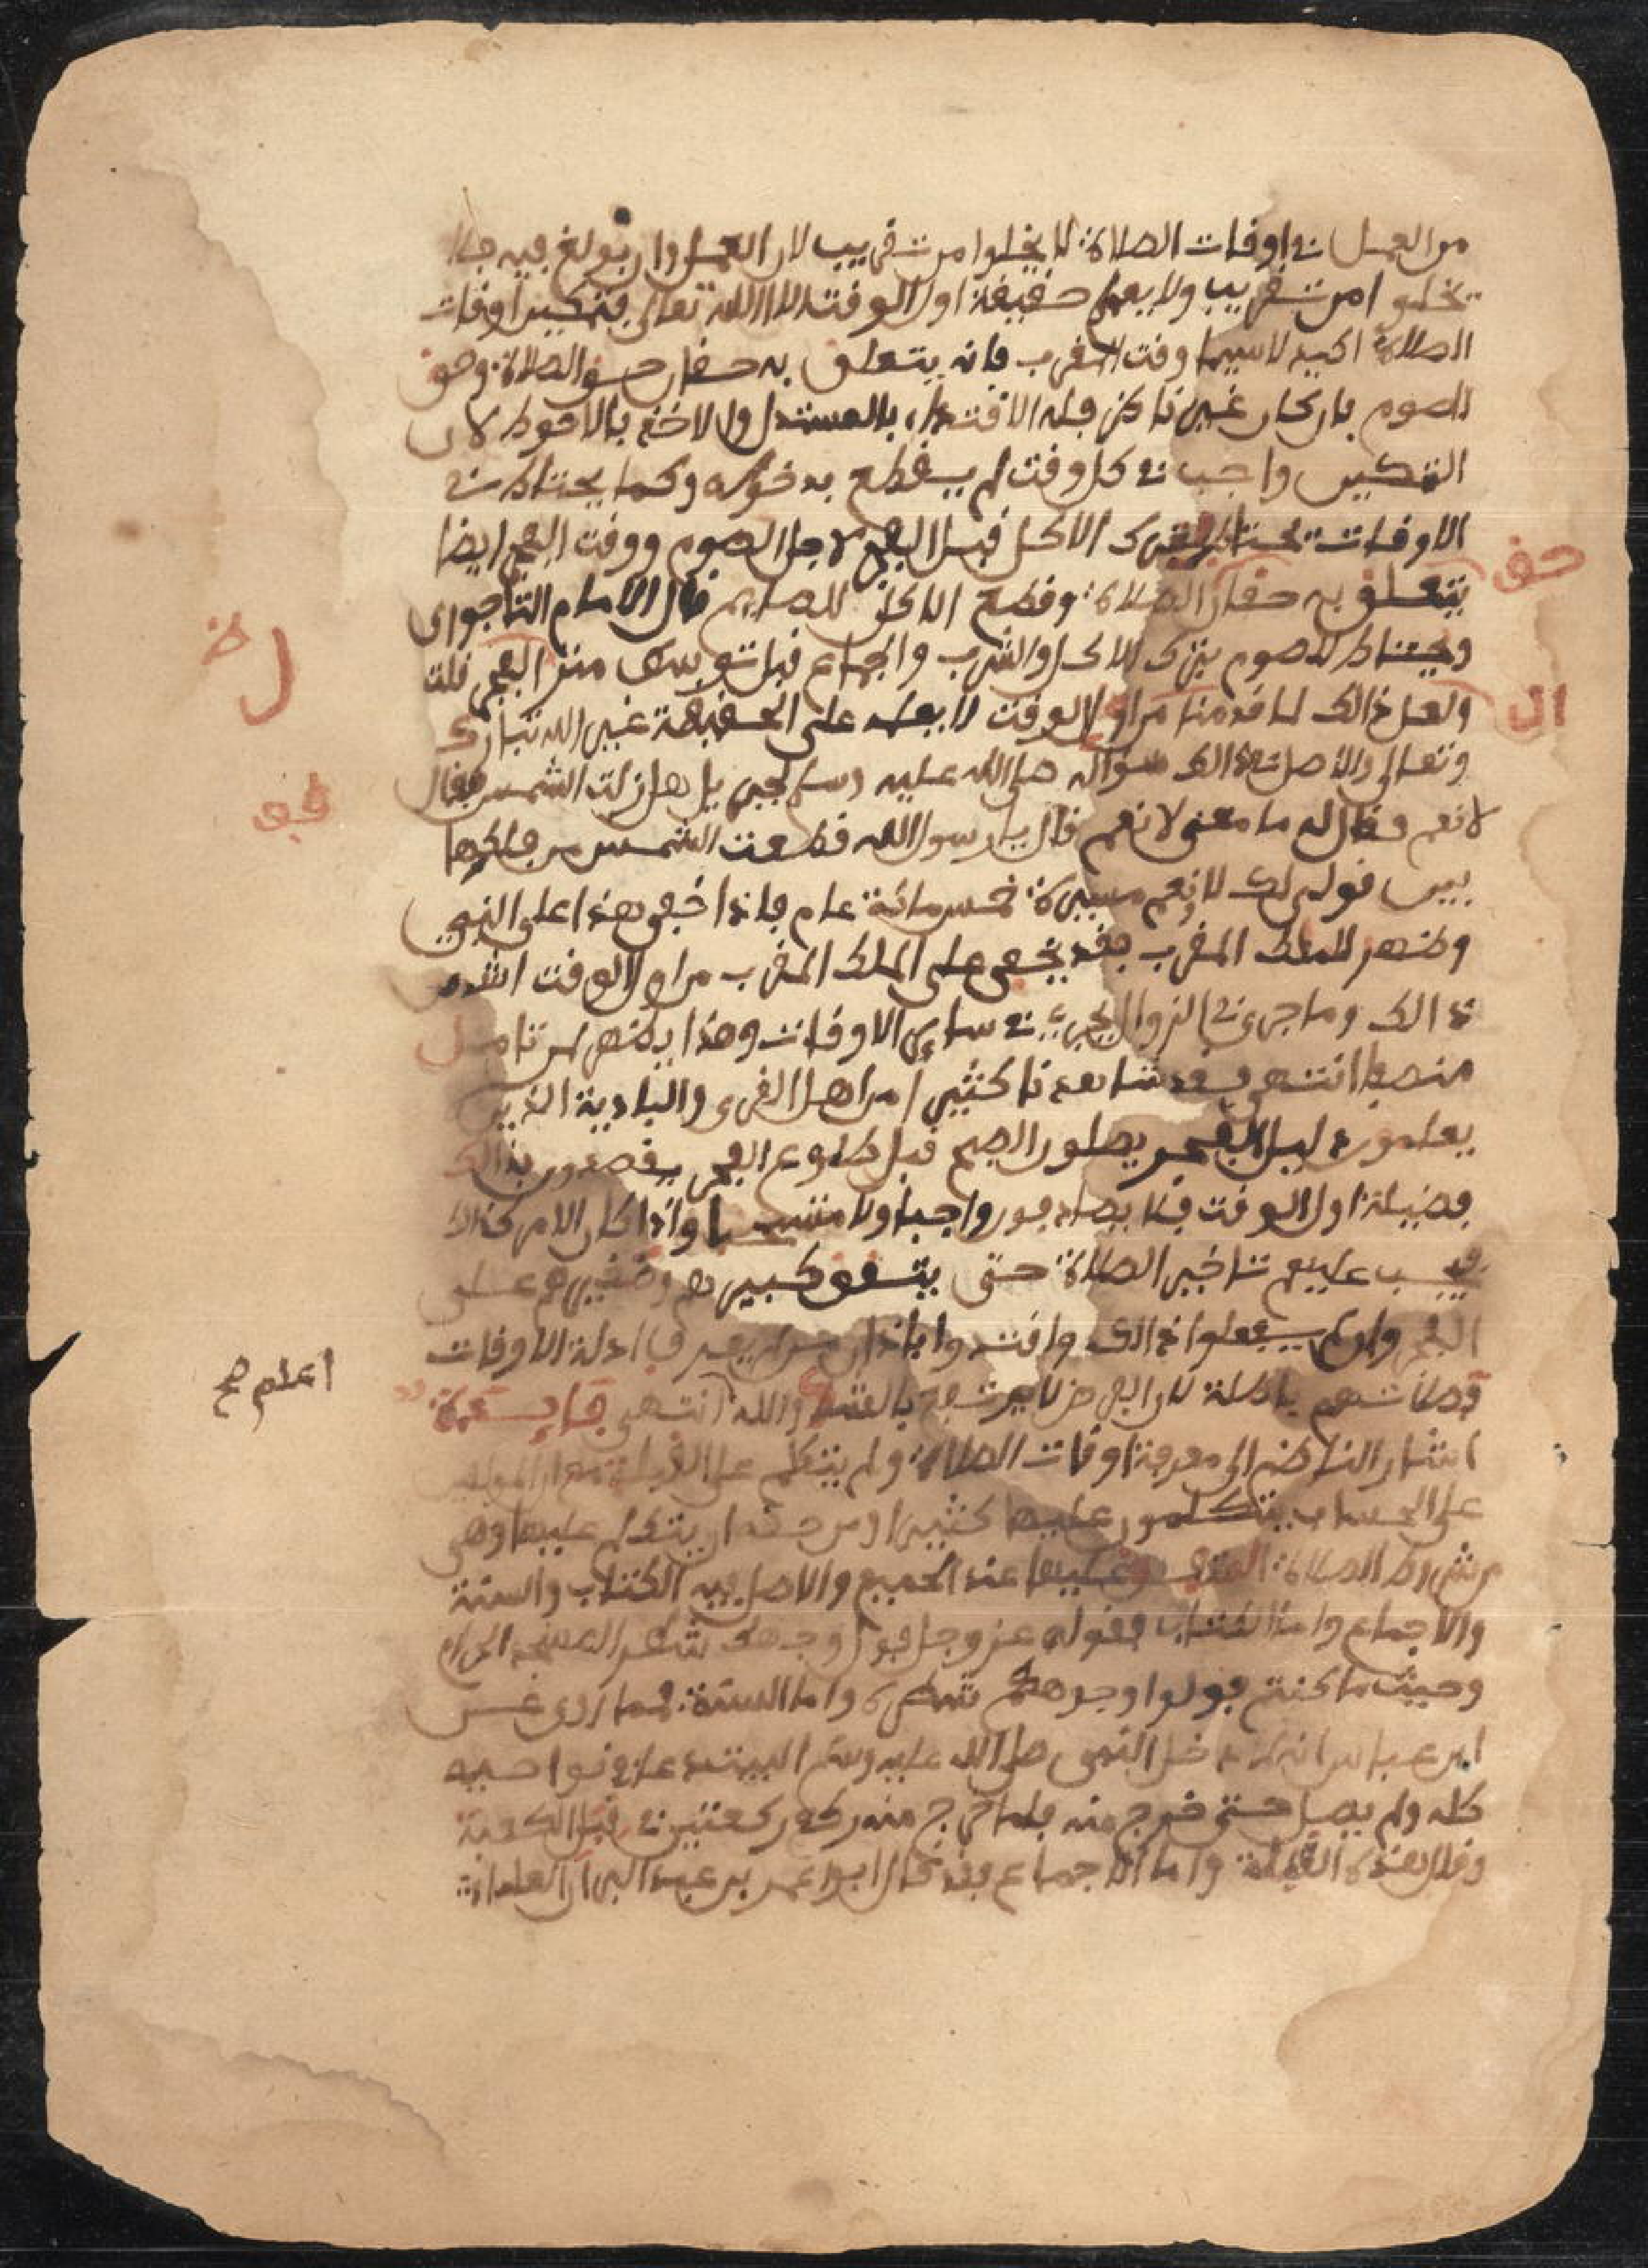 من العمل في اوقات الصلاة لا يخلوا من تقريب لان العمل وان بولغ فيه فلا
يخلوا من تقريب ولا يعلم حقيقة اول الوقت الا الله تعالى فتمكين اوقات
الصلاة اكيد لا سيما وقت المغرب فانه يتعلق به حقان حق الصلاة وحق
الصوم فان كان غير ناظر فله الاقتداء بالمستدل والاخذ بالاحوط لان
التمكين واجب في كل وقت لم يقطع بدخوله وكما يحتاط في
الاوقات يحتاط بترك الاكل قبل الفجر لاجل الصوم ووقت الفجر ايضا
يتعلق به حقان الصلاة وقطع الاكل للصايم قال الامام التاجوري
ويحتاط للصوم بترك الاكل والشرب والجماع قبل توسط منزل الفجر قلت
ولعل ذالك لما قدمنا من اول الوقت لا يعلمه على الحقيقة غير الله تبارك
وتعالى والاصل في ذالك سواله صلى الله عليه وسلم لجبريل هل زالت الشمس فقال
لا نعم فقال له ما معنى لا نعم قال يا رسول الله قطعت الشمس من فلكها
بين قولي لك لا ونعم مسيرة خمسمائة عام فاذا خفي هذا على النبي
وظهر للملك المقرب فقد يخفى على الملك المقرب من اول الوقت اشد من
ذالك وما جرى في الزوال يجري في ساير الاوقات وهذا يظهر لمن تامل
منصفا انتهى وقد شاهدنا كثيرا من اهل القرى والبادية الذين
يعلمون دليل الفجر يصلون الصبح قبل طلوع الفجر يقصدون بذالك
فضيلة اول الوقت فلا يصادفون واجبا ولا مستحبا واذا كان الامر كذالك
فيجب عليهم تاخير الصلاة حتى يتفق كبيرهم وصغيرهم على
الفجر وان لم يفعلوا ذالك واقتدوا باذان من لم يعرف ادلة الاوقات
فصلاتهم باطلة لان الفرض لا يرتفع بالشك والله انتهى فايدة
اشار الناظم الى معرفة اوقات الصلاة ولم يتكلم على القبلة مع ان المولفين
على الحساب يتكلمون عليها كثيرا ومن حقه ان يتكلم عليها وهي
من شروط الصلاة المتفق عليها عند الجميع والاصل فيه الكتاب والسنة
والاجماع واما الكتاب فقوله عز وجل فول وجهك شطر المسجد الحرام
وحيث ما كنتم فولوا وجوهكم شطره واما السنة فما روي عن
ابن عباس انه لما دخل النبي صلى الله عليه وسلم البيت دعا في نواحيه
كله ولم يصل حتى خرج منه فلما خرج منه ركع ركعتين في قبل الكعبة
وقال هذه القبلة واما الاجماع فقد قال ابو عمر بن عبد البر ان العلماء
حق
ال
اعلم صح